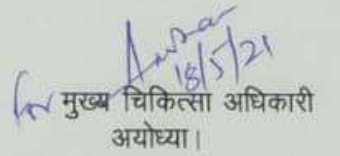 18/5/21
For मुख्य चिकित्सा अधिकारी
अयोध्या।